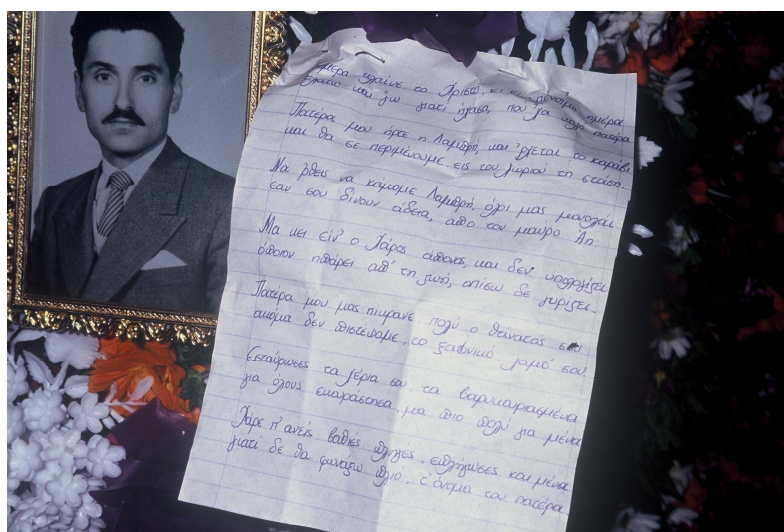 μερα κλαίνε το Χριστό, κι εί πένθιμη ημέρα
κλαίω και γω γιατί ήχασα, που χα καλό πατέρα
Πατέρα μου ήρθε η Λαμπρή, και έρχεται το καράβι
και θα σε περιμένωμε εις του χωριού τη στάση
Να ρθεις να κάμομε Λαμπρή, όλοι μας μονοιά
σαν σου δίνουν άδεια, απο τον μαυρο Άη
Μα κει είν' ο Χάρος άπονος, και δεν υπολογίζει
όποιον πάρει απ' τη ζωή, οπίσω δε γυρίζει
Πατέρα μου μας πίκρανε πολύ ο θάνατός σου
ακόμα δεν πιστεύομε, το ξαφνικό χαμό σου
Εσταύρωσες τα χέρια σου τα βαρυκουρασμένα
για όλους εκουράστηκα μα πιο πολύ για μένα
Χάρε π' ανεις βαθιές πληγές, επλήγωσες και μένα
γιατί δε θα φωνάξω πλιό, τ' όνομα του πατέρα